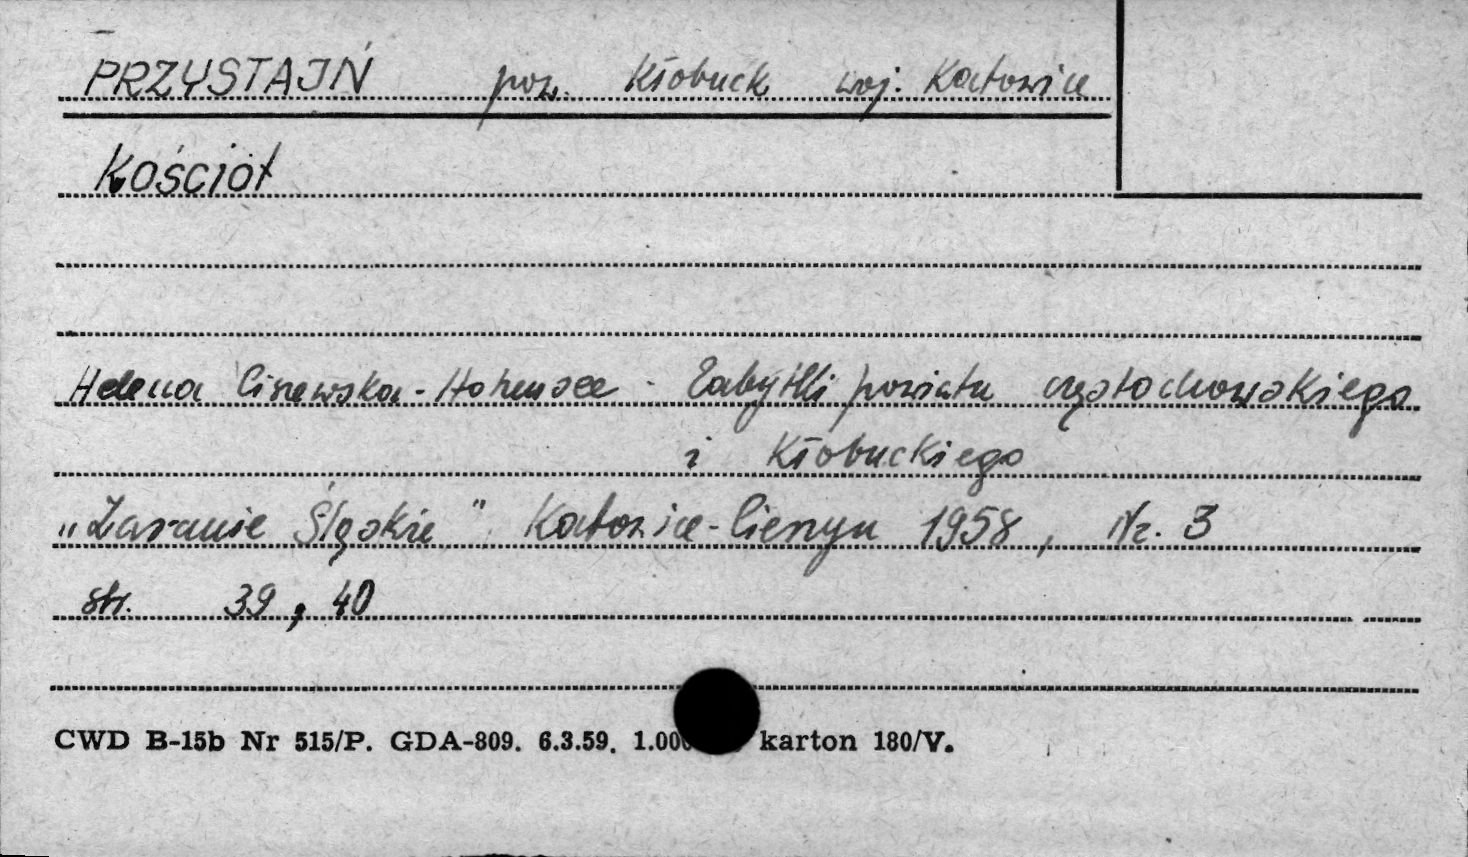 PRZYSTAJŃ pow. Kłobuck woj. Katowice
Kościół
Helena Ciszewska-Hohensee - Zabytki powiatu częstochowskiego
i Kłobuckiego
„Zaranie Śląskie" Katowice-Cieszyn 1958, Nr. 3
str. 39, 40
CWD B-15b Nr 515/P. GDA-809. 6.3.59. karton 180/V.